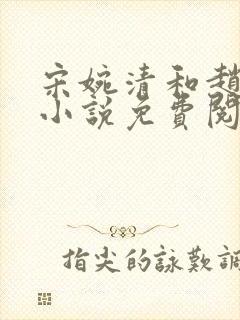 宋婉清和趙
小說免費閱
指尖的詠歎調